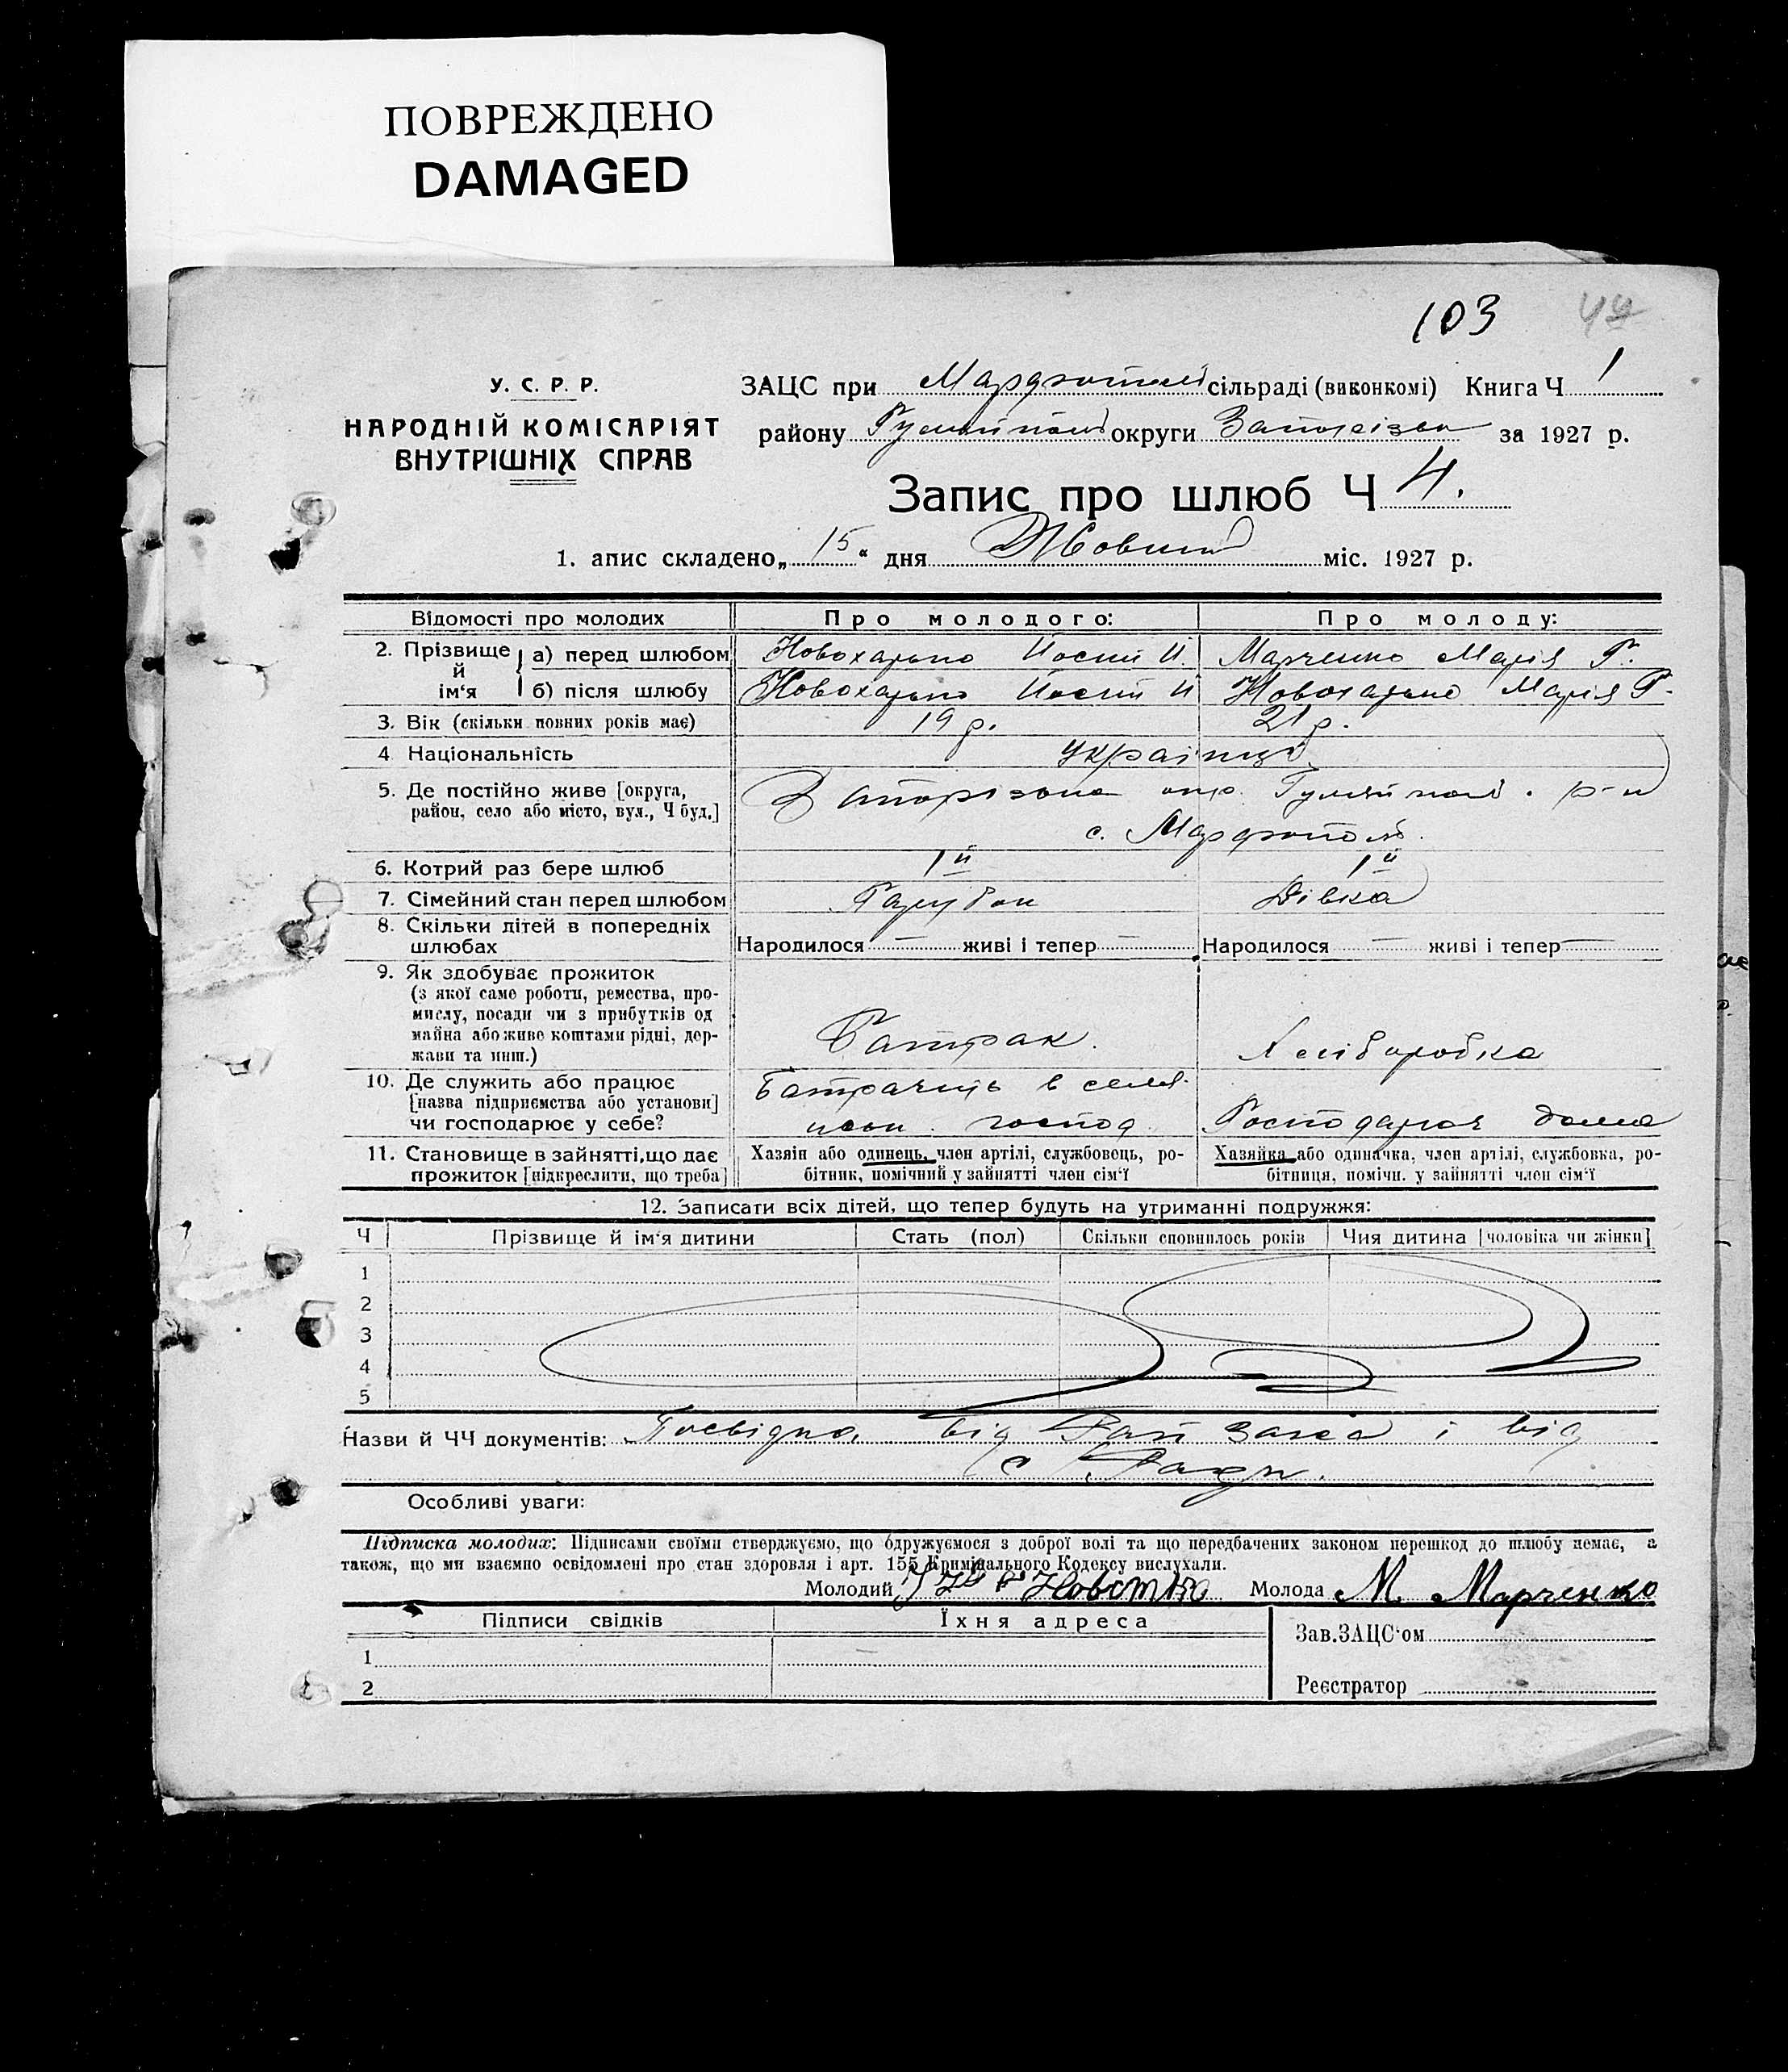 ПОВРЕЖДЕНО
DAMAGED
103
У. С. Р. Р.
НАРОДНІЙ КОМІСАРІЯТ
ВНУТРІШНІХ СПРАВ
ЗАЦС при Марфопол сільраді (виконкомі) Книга Ч 1
району Гуляйпол округи Запорізьк за 1927 р.
Запис про шлюб Ч 4.
1. апис складено „15“ дня Жовтня міс. 1927 р.
Відомості про молодих Про молодого: Про молоду:
2. Прізвище й ім‘я
а) перед шлюбом Новохатько Йосип Й. Марченко Марія Г.
б) після шлюбу Новохатько Йосип Й Новохатько Марія Г.
3. Вік (скільки повних років має) 19 р. 21 р.
4 Національність Українці
5. Де постійно живе [округа, Запорізька окр. Гуляйпол. р-н
район, село або місто, вул., Ч буд.] с. Марфопол
6. Котрий раз бере шлюб 1й 1й
7. Сімейний стан перед шлюбом Парубок Дівка
8. Скільки дітей в попередніх
шлюбах Народилося — живі і тепер — Народилося — живі і тепер —
9. Як здобуває прожиток
(з якої саме роботи, ремества, про-
мислу, посади чи з прибутків од
майна або живе коштами рідні, дер- Батрак. Хліборобка
жави та инш.)
10. Де служить або працює Батрачить в селя
[назва підприємства або установи]
чи господарює у себе? господ. Господарює дома
11. Становище в зайнятті, що дає Хазяїн або одинець, член артілі, службовець, ро- Хазяйка або одиначка, член артілі, службовка, ро-
прожиток [підкреслити, що треба] бітник, помічний у зайнятті член сім‘ї бітниця, помічн. у зайнятті член сім‘ї
12. Записати всіх дітей, що тепер будуть на утриманні подружжя:
Ч Прізвище й ім‘я дитини Стать (пол) Скільки сповнилось років Чия дитина [чоловіка чи жінки]
1
2
3
4
5
Назви й ЧЧ документів: Посвідка від Рай Загса і від
с Ради.
Особливі уваги:
Підписка молодих: Підписами своїми стверджуємо, що одружуємося з доброї волі та що передбачених законом перешкод до шлюбу немає, а
також, що ми взаємно освідомлені про стан здоровля і арт. 155 Кримінального Кодексу вислухали.
Молодий Молода М. Марченко
Підписи свідків Їхня адреса Зав.ЗАЦС‘ом
1
2 Реєстратор